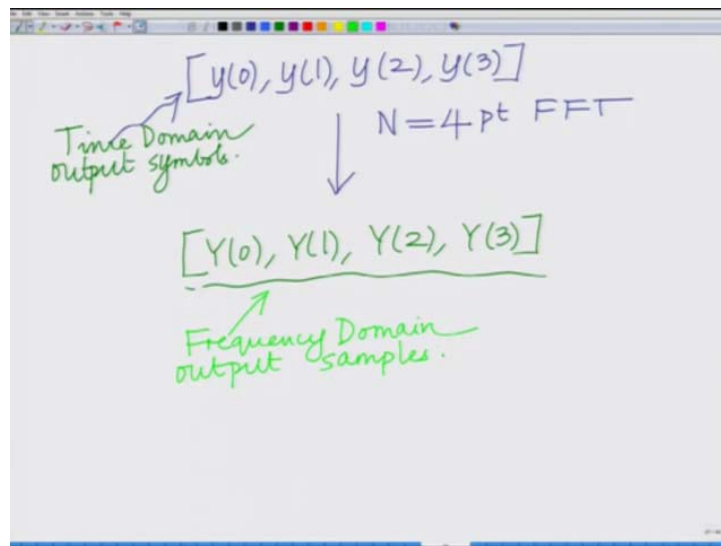 [y(0), y(1), y(2), y(3)]
N=4 pt FFT
Time Domain
output symbols.
[Y(0), Y(1), Y(2), Y(3)]
Frequency Domain
output samples.